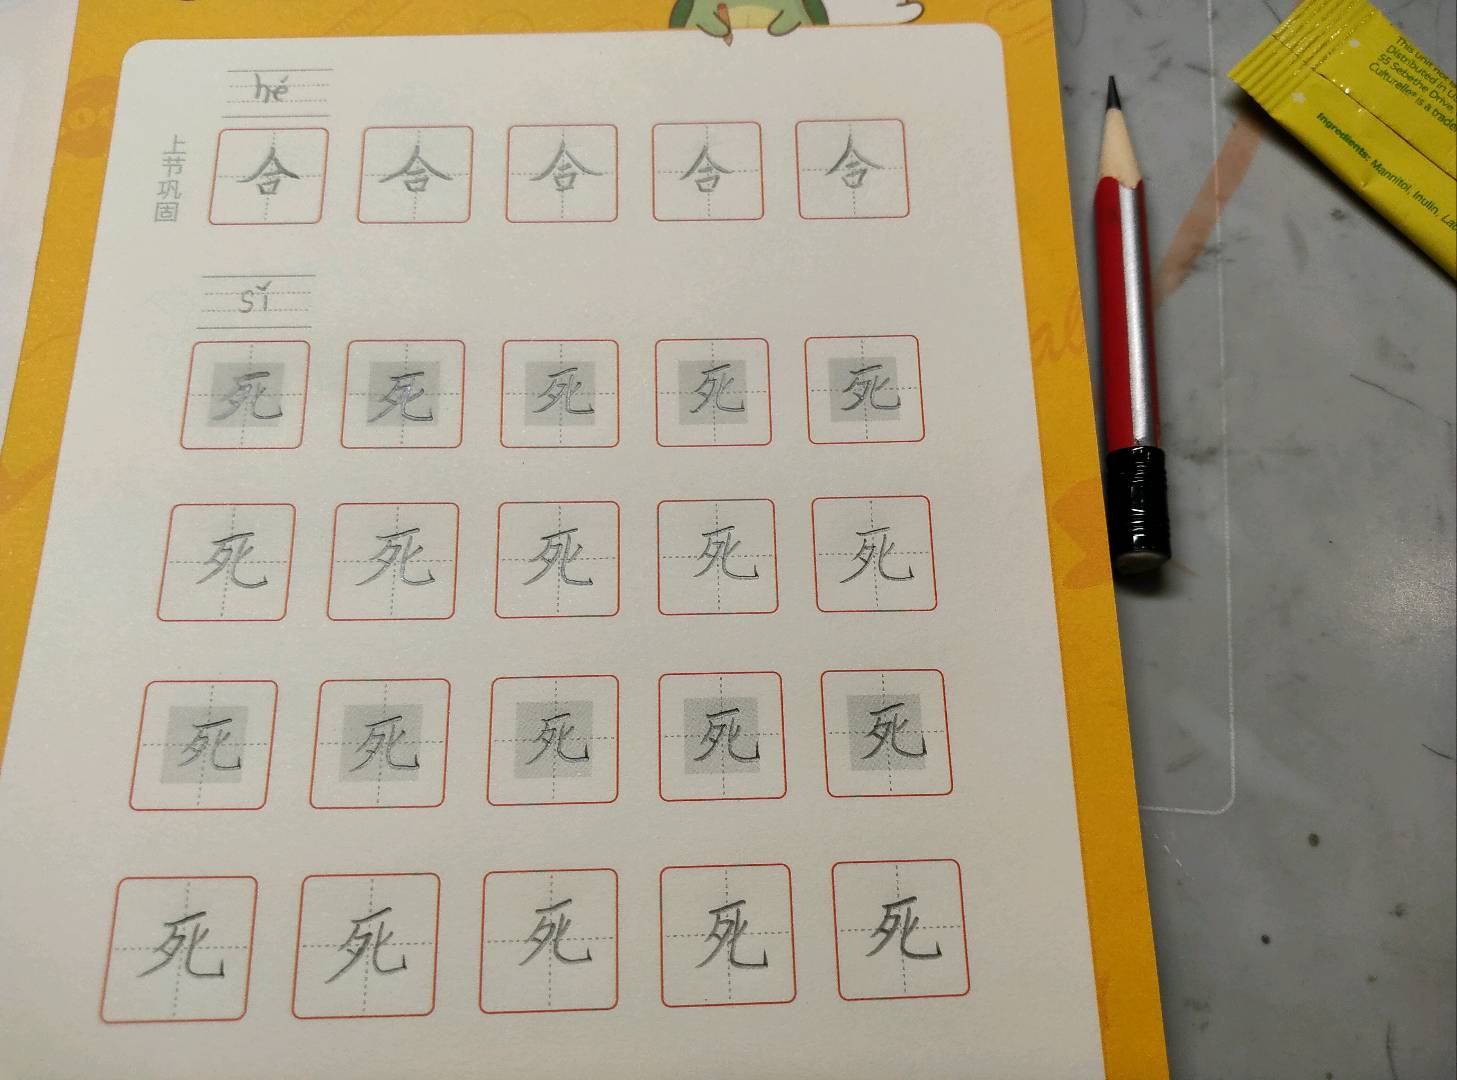 hé
上节巩固
合 合 合 合 合
sǐ
死 死 死 死 死
死 死 死 死 死
死 死 死 死 死
死 死 死 死 死
This unit not
Distributed in U
55 Sebethe Drive,
Culturelle® is a trade
Ingredients: Mannitol, Inulin, Lac